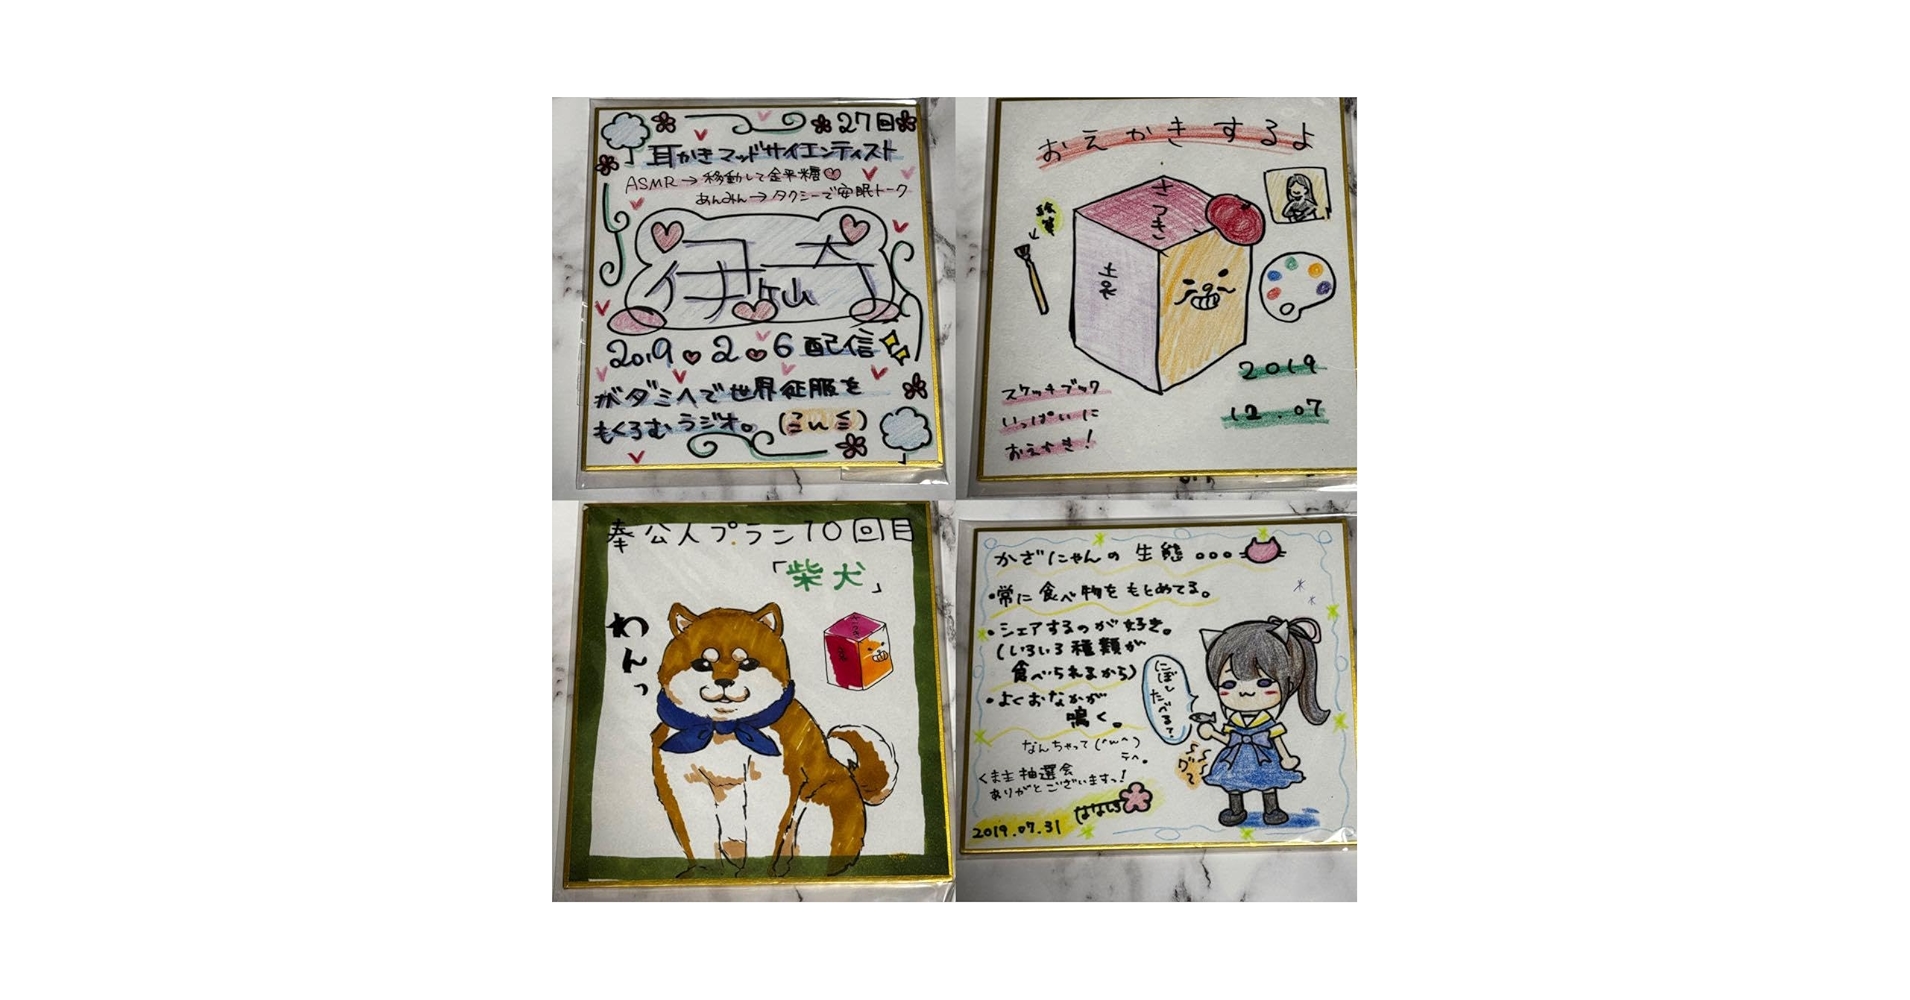 27回
耳かきマッドサイエンティスト
ASMR→移動して金平糖
あんみん→タクシーで安眠トーク
伊ヶ崎
2019 2 6 配信
がダミヘで世界征服を
もくろむラジオ。
おえかきするよ
さつき
絵筆
2019
12.07
スケッチブック
いっぱいに
おえかき!
奉公人プラン10回目
「柴犬」
わんっ
かざにゃんの生態...
・常に食べ物をもとめてる。
・シェアするのが好き。
(いろいろ種類が
食べられるから)
・よくおなかが
鳴く。
にぼし
たべる?
グ〜
なんちゃって(^w^)
テヘ。
くま主抽選会
ありがとございますっ!
ななしろ
2019.07.31